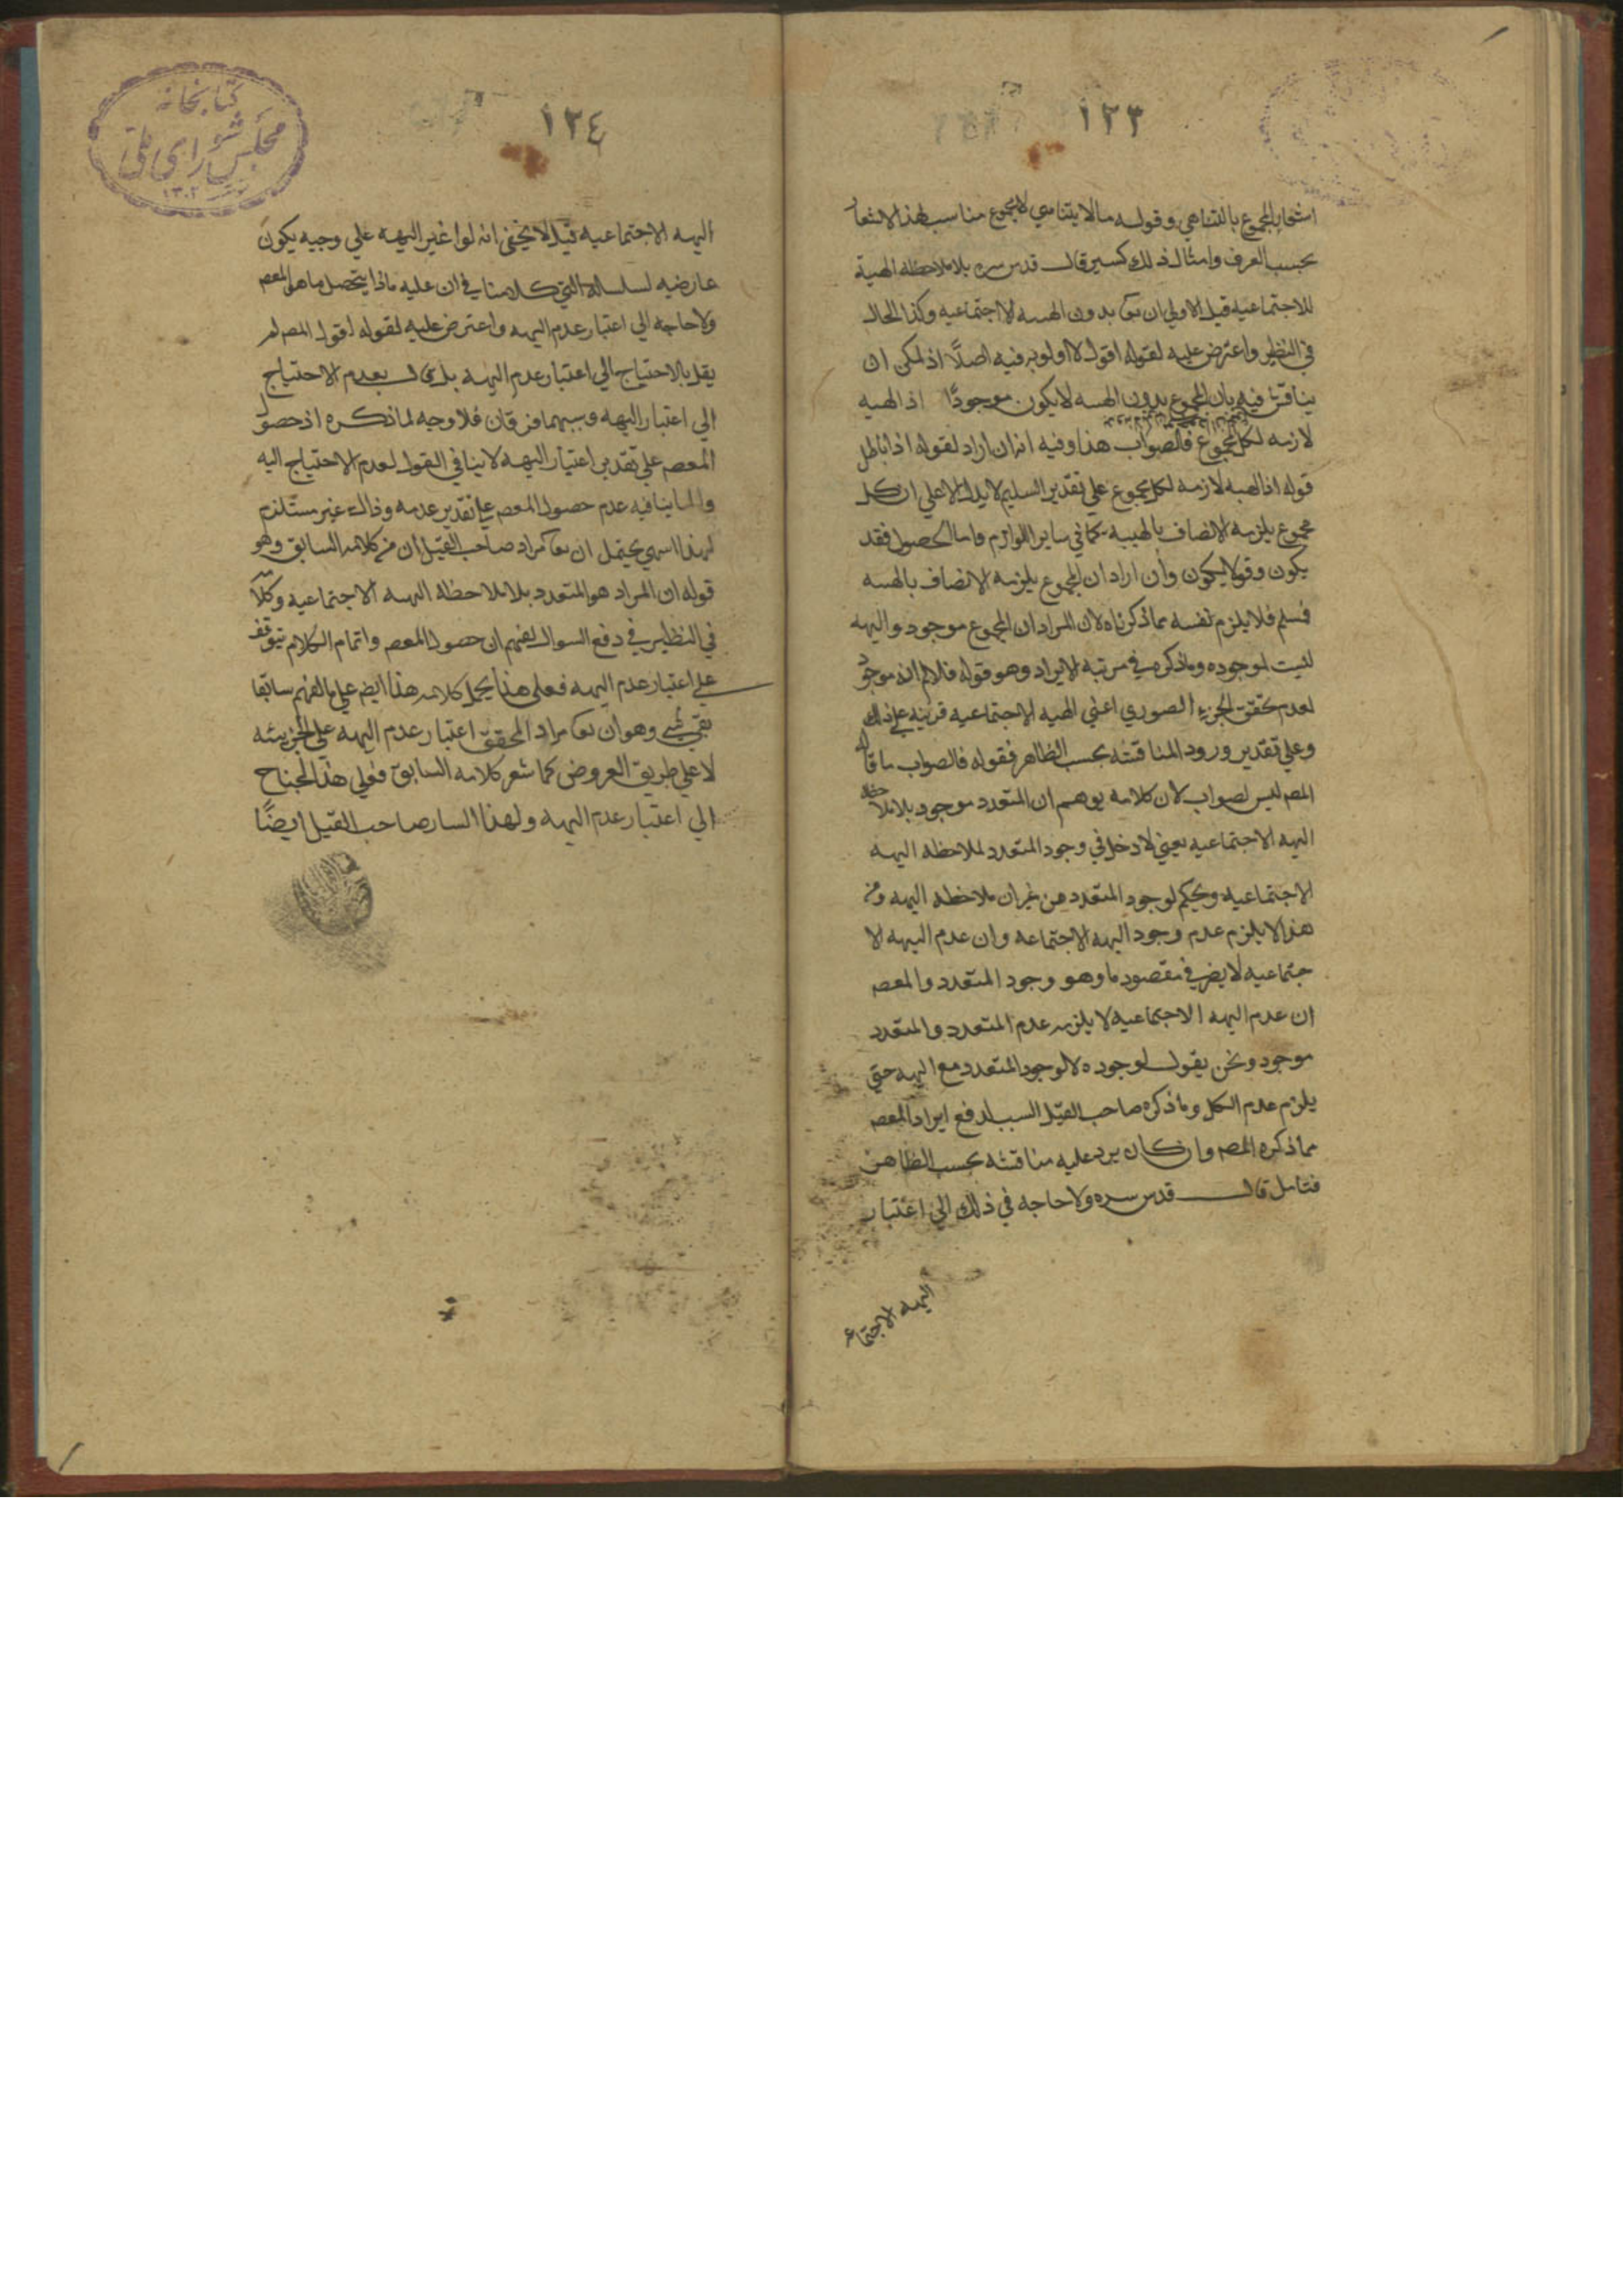 ١٢٣
اشعار المجموع بالتناهي وقوله مالا يتناهي لا مجموع مناسب لهذا الاشعار
بحسب العرف وامثال ذلك كسير قال قدس سره بلا ملاحظة الهية
للاجتماعيه قيل الاولي ان يقا بدون الهسه لاجتماعيه وكذا الحال
في النظير واعترض عليه لقوله اقول لا اولويه فيه اصلًا اذ لمكن ان
يناقش فيه بان المجموع بدون الهسه لا يكون موجودًا اذ الهيه
لازمه لكل مجموع فالصواب هذا وفيه انه ان اراد لقوله اذا باطل
قوله اذ الهبه لازمه لكل مجموع علي تقدير السليم لا يدل الا علي ان كل
مجموع يلزمه الاتصاف بالهيبه كما في ساير اللوازم واما الحصول فقد
يكون وقولا يكون وان اراد ان المجموع يلزمه الاتصاف بالهسه
فسلم فلا يلزم نفسه مما ذكرناه لان المراد ان المجموع موجود واليهه
ليست لموجوده وما ذكره في مرتبه الايراد وهو قوله فلا لم انه موجود
لعدم تحقق الجزء الصوري اعني الهيه الاجتماعيه قرينه علي ذلك
وعلي تقدير ورود المناقشه بحسب الظاهر فقوله فالصواب ما قاله
المصه ليس لصواب لان كلامه يوهم ان المتعدد موجود بلا ملاحظه
اليهه الاجتماعيه يعني لا دخل في وجود المتعدد لملاحظه اليهه
الاجتماعيه ويحكم لوجود المتعدد من غير ان ملاحظه اليهه ومن
هذا لا يلزم عدم وجود اليهه الاجتماعه وان عدم اليهه الا
جتماعيه لا يضر في مقصود ما وهو وجود المتعدد والمعصه
ان عدم اليهه الاجتماعيه لا يلزمه عدم المتعدد والمتعدد
موجود ونحن نقول لوجوده لا لوجود المتعدد مع اليهه حتي
يلزم عدم الكل وما ذكره صاحب القيل السب لدفع ايراد المعصه
مما ذكره المصه وان كان يرد عليه مناقشه بحسب الظاهر
فتامل قال قدس سره ولا حاجه في ذلك الي اعتبار
اليهه الاجتماع
١٢٤
كتابخانه
مجلس شوراى ملى
١٣٠٢
اليهه الاجتماعيه قيل لا يخفي انه لوا غير اليهه علي وجيه يكون
عارضيه لسلساله التي كلامنا في ان عليه ماذا يتحصل ما هو المعصم
ولا حاجه الي اعتبار عدم اليهه واعترض عليه لقوله اقول المصه لم
يقل بالاحتياج الي اعتبار عدم اليهه بل قال بعدم الاحتياج
الي اعتبار اليهه وبينهما فرقان فلا وجه لما ذكره اذ حصول
المعصم علي تقدير اعتبار اليهه لا ينافي القول لعدم الاحتياج اليه
والما ينافيه عدم حصول المعصم علي تقدير عدمه وذالك غير مستلزم
لهذا يحتمل ان يقا مراد صاحب القيل ان من كلامه السابق وهو
قوله ان المراد هو المتعدد بلا ملاحظه اليهه الاجتماعيه وكلا
في النظير في دفع السوال يفهم ان حصول المعصم واتمام الكلام يتوقف
علي اعتبار عدم اليهه فعلي هذا يحمل كلامه هذا ايضم علي ما لفهم سابقا
بقي شي وهو ان يقا مراد المحقق اعتبار عدم اليهه علي الجزيئه
لا علي طريق العروض كما شعر كلامه السابق فعلي هذا لجناح
الي اعتبار عدم اليهه ولهذا السار صاحب القيل ايضًا